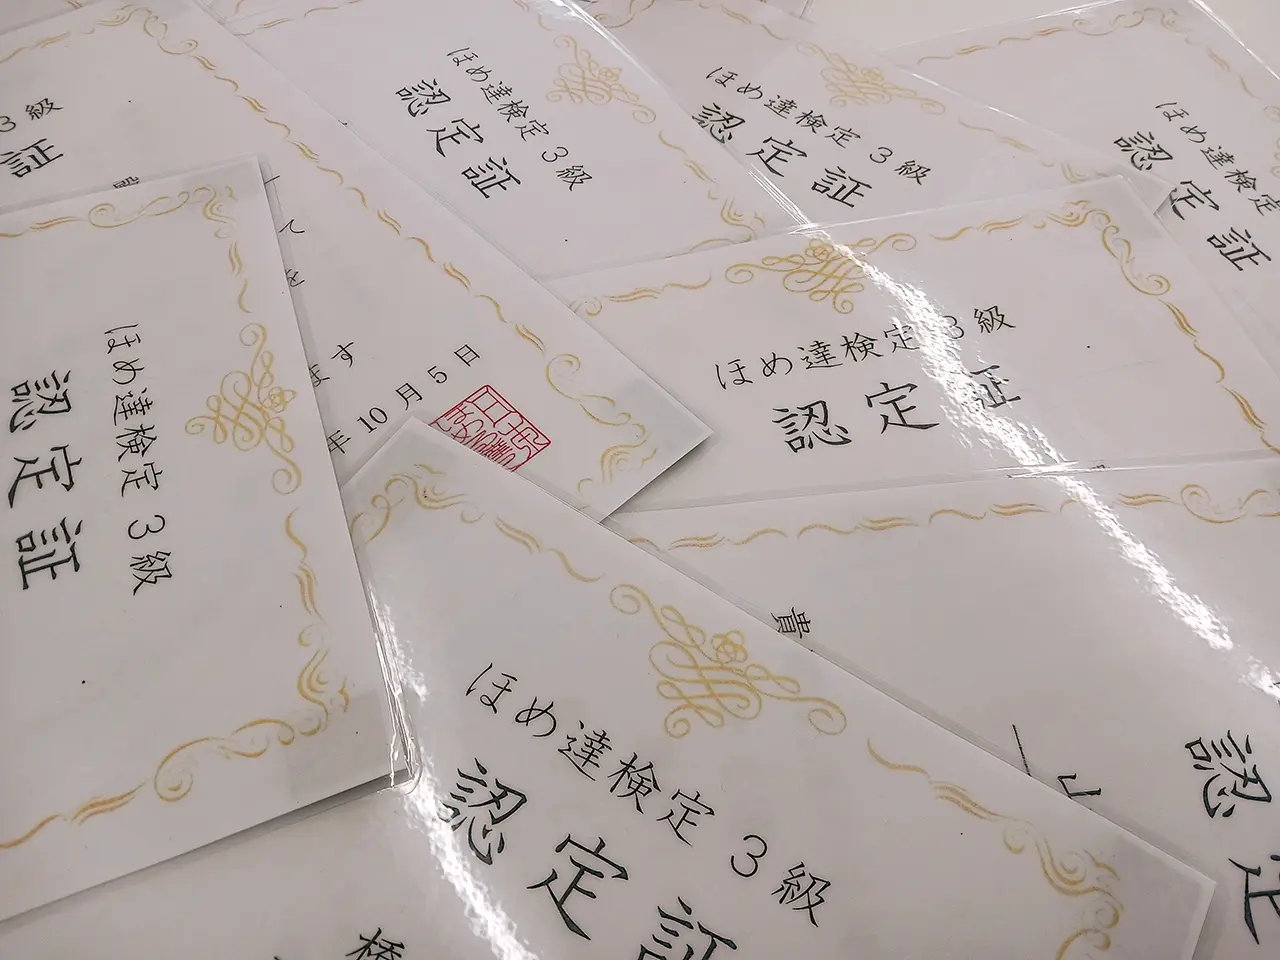 3級
証
ほめ達検定 3級
認定証
ほめ達検定 3級
認定証
ほめ達検定
認定証
ほめ達検定 3級
認定証
ほめ達検定 3級
認定証
て
を
ます
年 10 月 5 日
貴
認
定
ほめ達検定 3級
認定証
橋